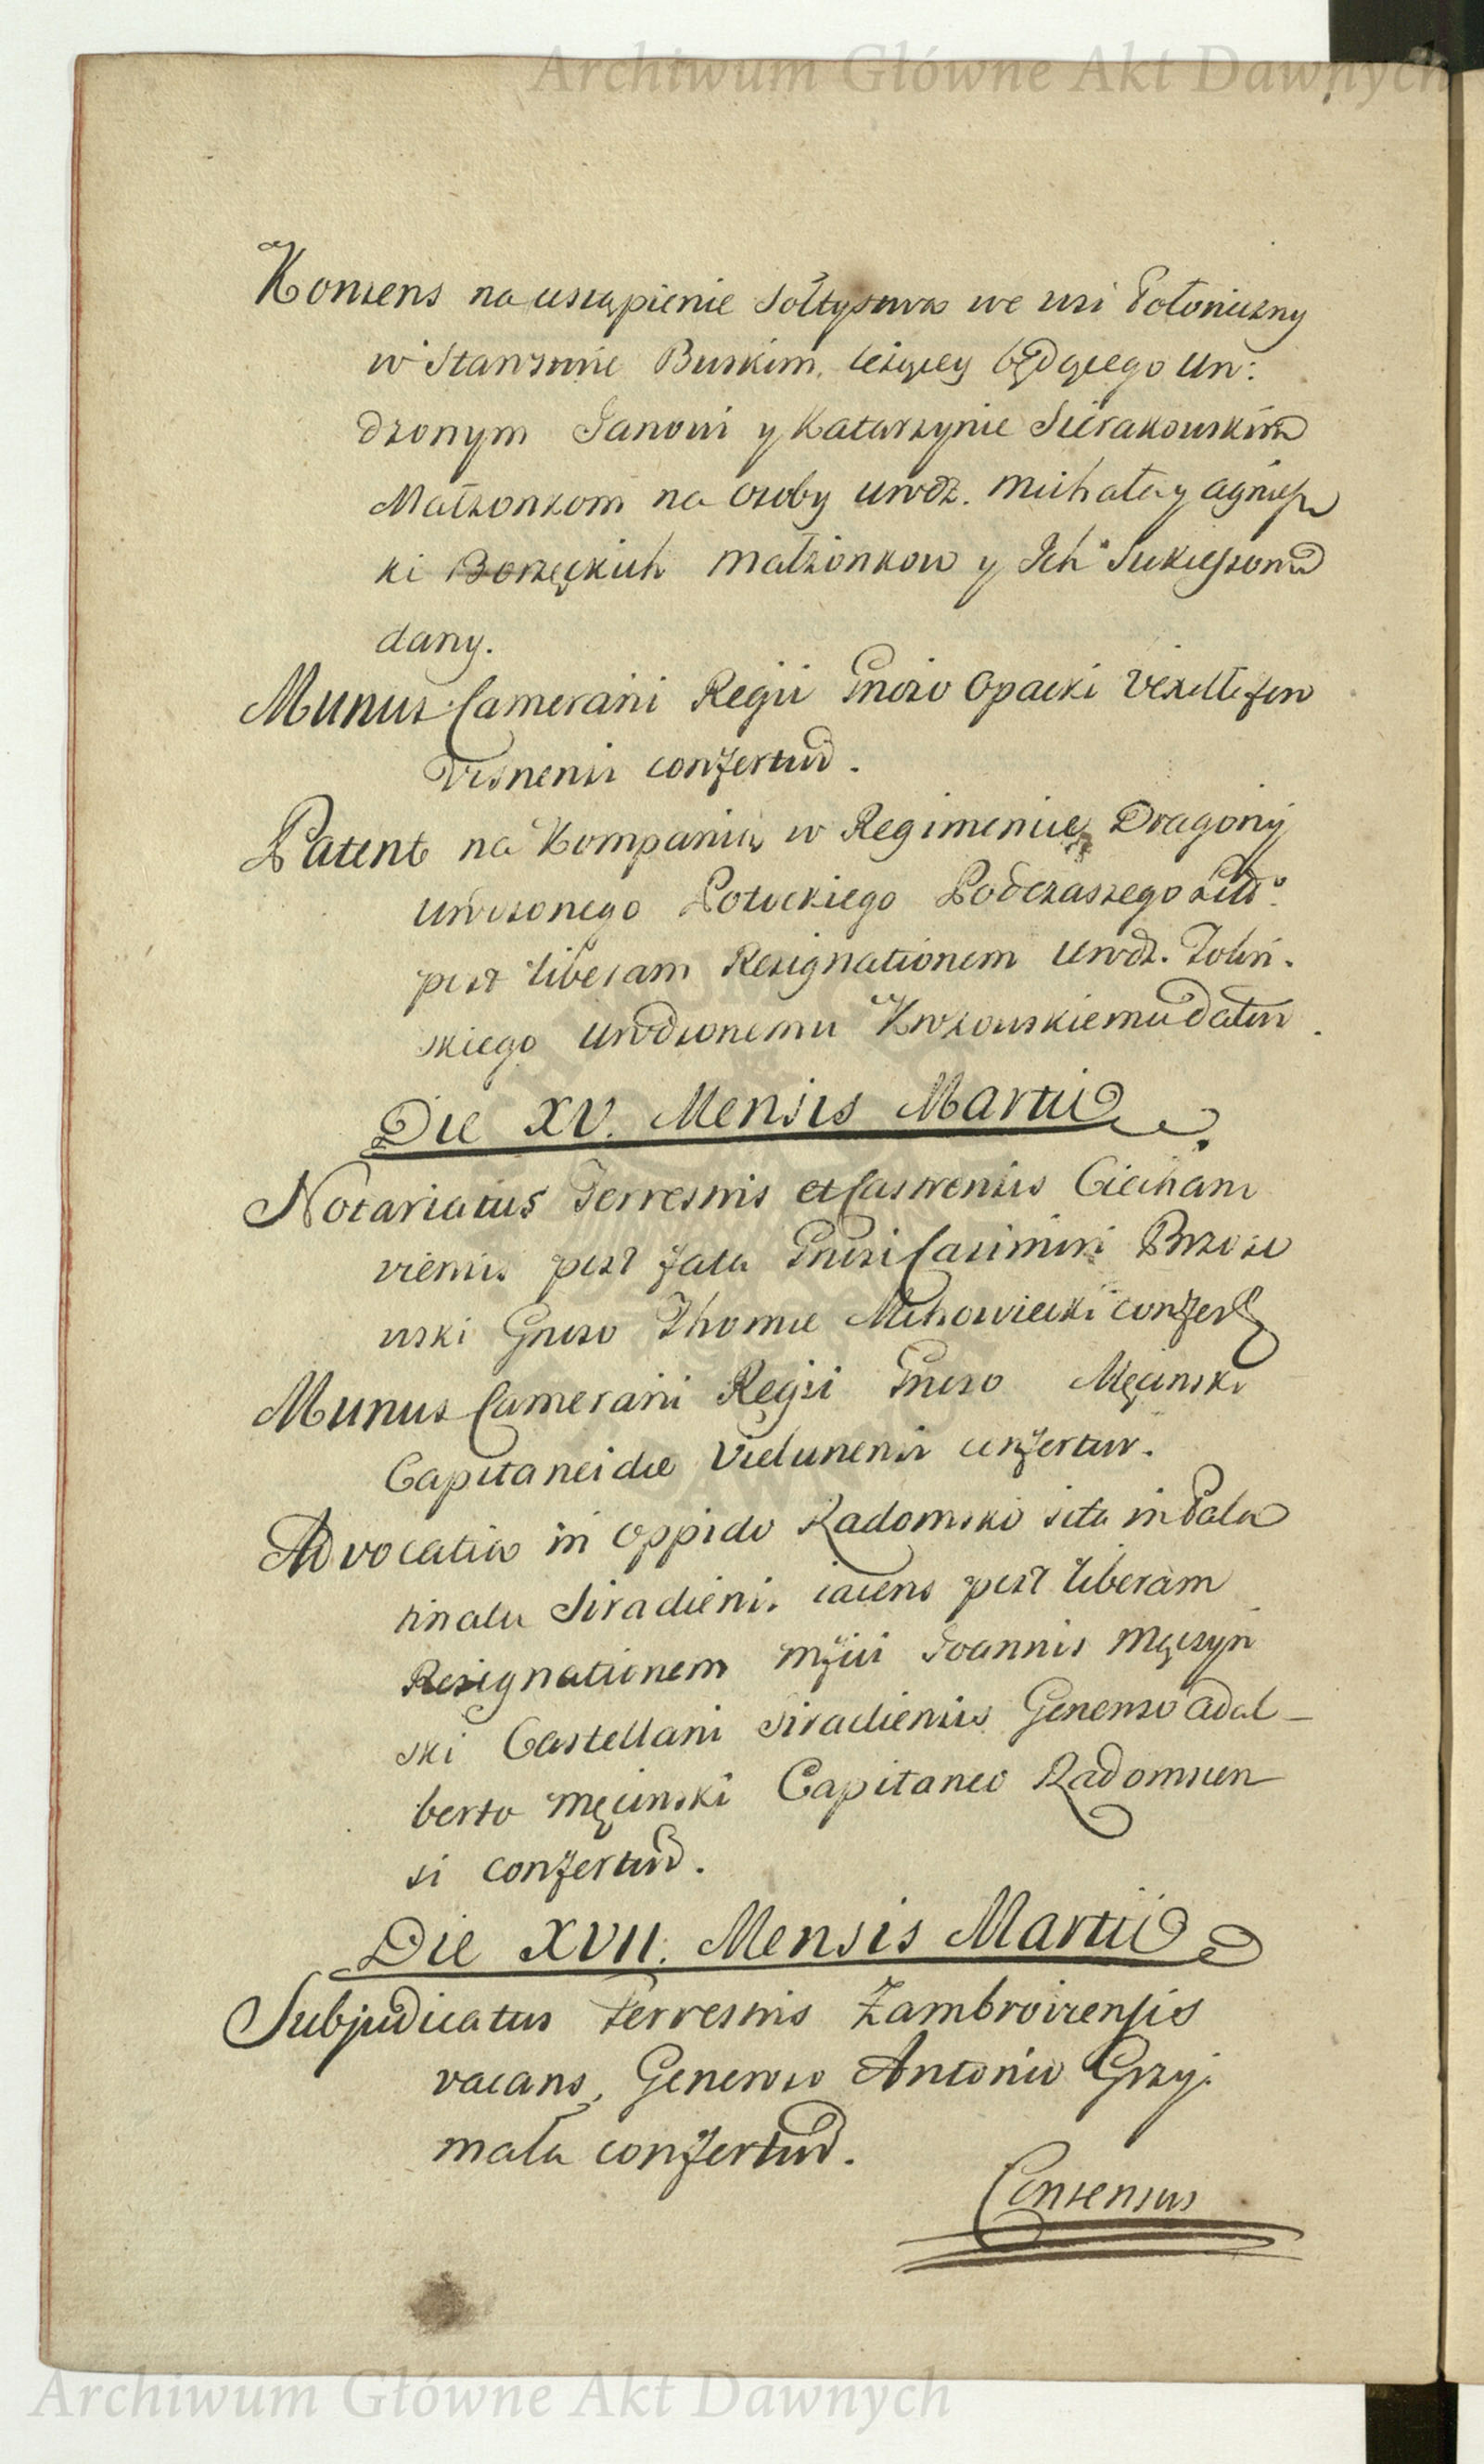 Archiwum Główne Akt Dawnych
Konsens na ustąpienie Sołtystwa we wsi Połoniczny
w Starostwie Buskim leżącey będącego Uro:
dzonym Janowi y Katarzynie Sierakowskim
Małżonkom na osoby Urodz. Michała y Agniesz
ki Borzęckich Małżonkow y Ich Sukcessorow
dany.
Munus Camerarii Regii Gnoso Opacki Vexillifero
Visnensi confertur.
Patent na Kompanią w Regimencie Dragonij
Urodzonego Potockiego Podczaszego Litt°
post liberam Resignationem Urodz.
skiego Urodzonemu datur.
Die XV. Mensis Martii
Notariatus Terrestris et Castrensis Ciechano
viensis post fata Gnosi Casimiri Brzozo
wski Gnoso Thomae confertur
Munus Camerarii Regii Gnoso Męcinski
Capitaneidae Vielunensi confertur.
Advocatia in Oppido Radomsko sita in Pala
tinatu Siradiensi iacens post liberam
Resignationem Mgfici Joannis Męczyn
ski Castellani Siradiensis Generoso Adal-
berto Męcinski Capitaneo Radomsien
si confertur.
Die XVII. Mensis Martii
Subjudicatus Terrestris Zambroviensis
vacans, Generoso Antonio Grzy:
mała confertur.
Consensus
Archiwum Główne Akt Dawnych